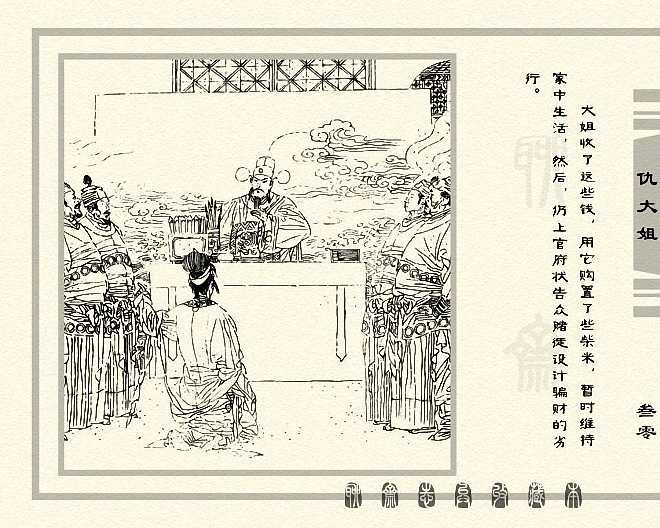 大姐收了这些钱，用它购置了些柴米，暂时维持
家中生活，然后，仍上官府状告众赌徒设计骗财的劣
行。
仇大姐
叁零
聊斋志异收藏本